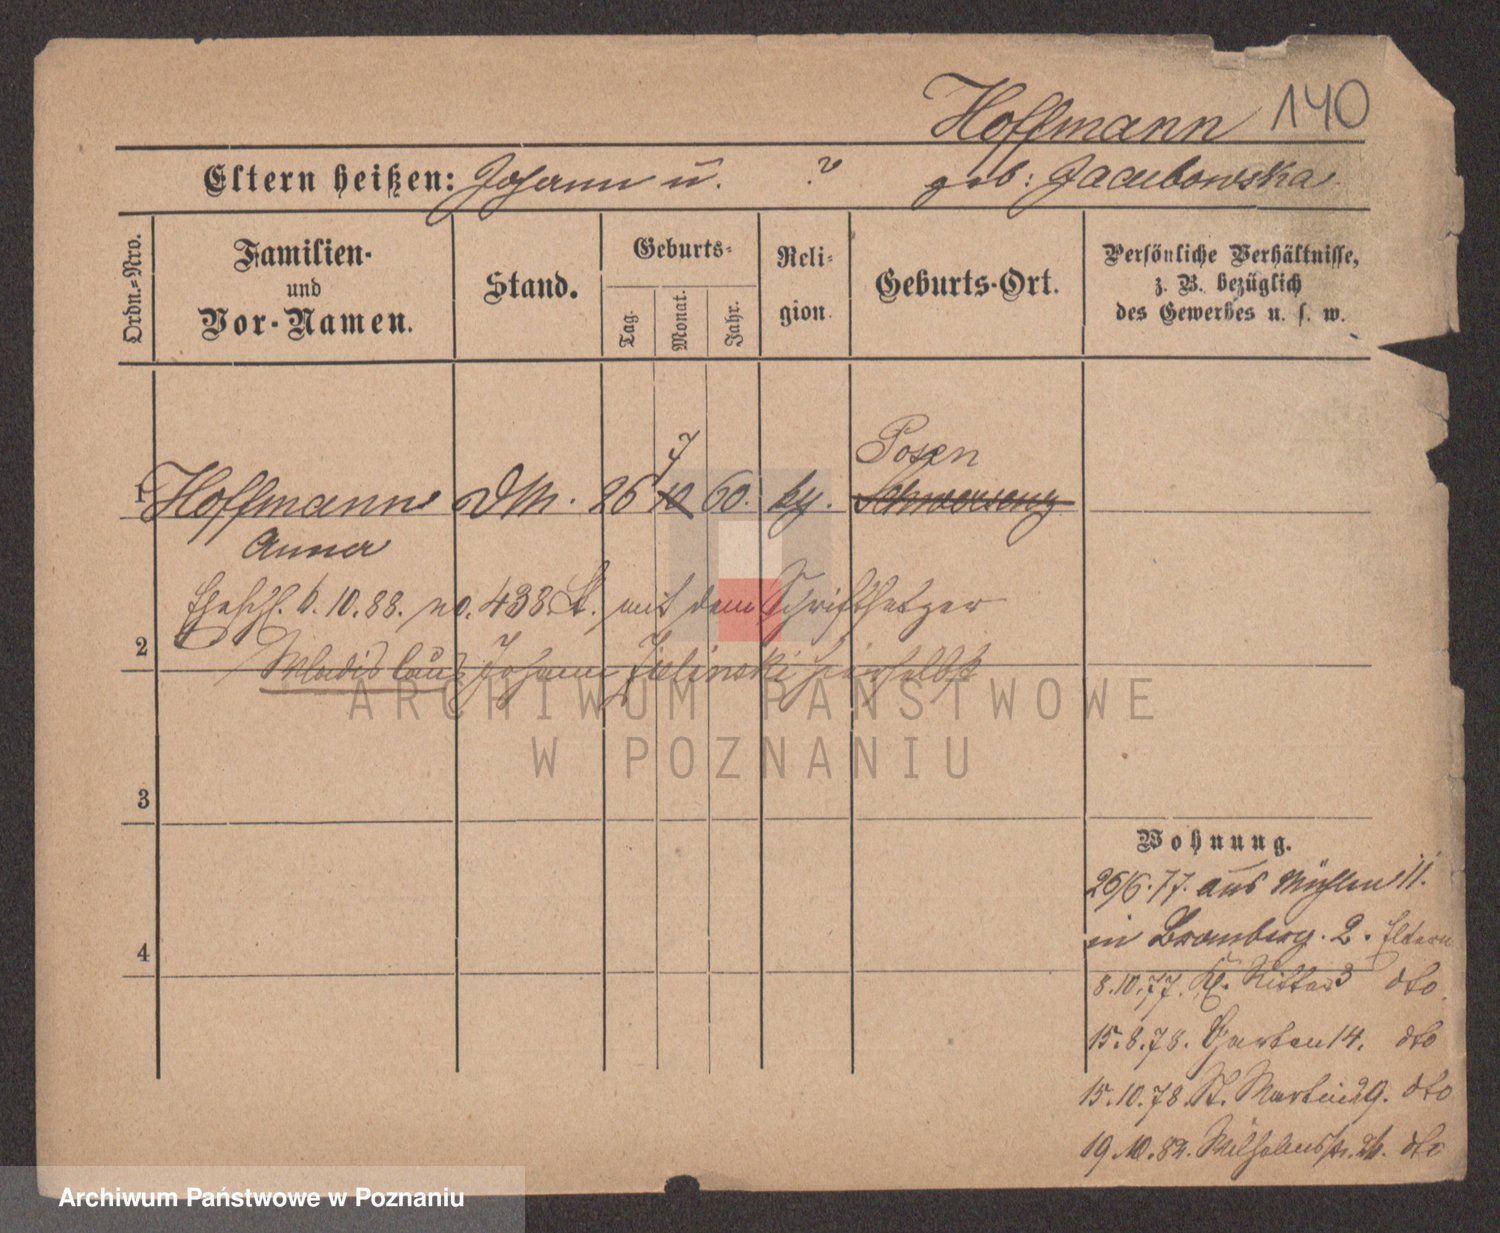 Hoffmann 140
Eltern heißen: Johann u. ? geb: Jacubowska
Ordn.-Nro.
Familien-
und
Vor-Namen.
Stand.
Geburts-
Tag.
Monat.
Jahr.
Reli-
gion.
Geburts-Ort.
Persönliche Verhältnisse,
z. B. bezüglich
des Gewerbes u. s. w.
7 Posen
1 Hoffmann DM. 26 10 60. Schwersenz
Anna
Eheschl. 6.10.88. no. 438. mit dem Schriftsetzer
2
Wladislaus Johann Zielinski hierselbst
ARCHIWUM PAŃSTWOWE
W POZNANIU
3
Wohnung.
26/6.77. aus Mühlen 11.
in Bromberg. 2. Eltern
4
8.10.77. Kl. Ritter 3 dto.
15.8.78. Garten 14. dto
15.10.78. St. Martin 29. dto
19.10.82. Wilhelmspl. dto
Archiwum Państwowe w Poznaniu